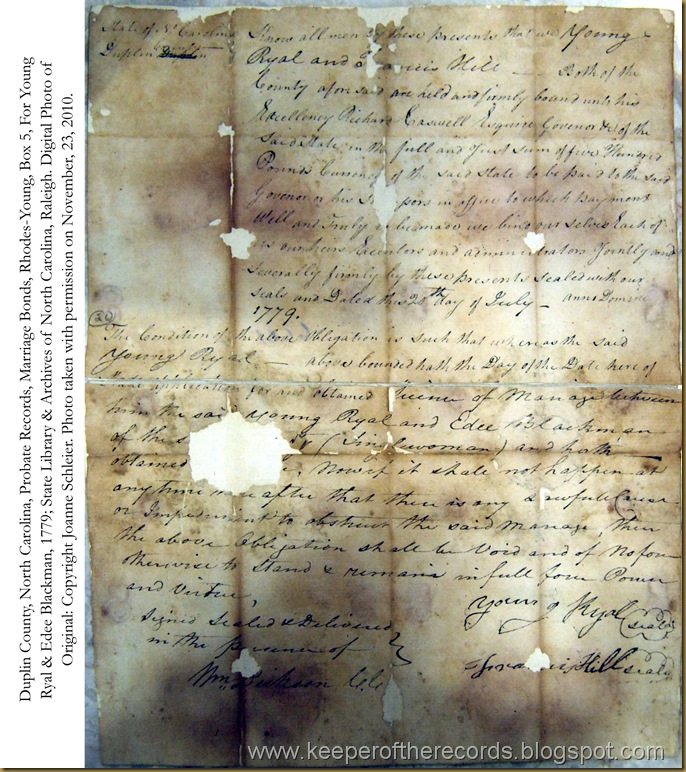 Duplin County, North Carolina, Probate Records, Marriage Bonds, Rhodes-Young, Box 5, For Young
Ryal & Edee Blackman, 1779; State Library & Archives of North Carolina, Raleigh. Digital Photo of
Original: Copyright Joanne Schleier. Photo taken with permission on November, 23, 2010.
State of No Carolina
Duplin
Know all men by these presents that we Young
Ryal and Francis Hill Both of the
County aforesaid are held and firmly bound unto his
Excellency Richard Caswell Esquire Govenor &c of the
said State in the full and Just sum of five Hundred
Pounds Currency of the said State to be paid to the said
Govenor or his in office to which payment
Well and Truly to be made we bind our selves Each of
us our heirs Executors and administrators Jointly and
severally firmly by these presents sealed with our
seals and Dated this 20th day of July anno Domini
1779.
The Condition of the above obligation is such that whereas the said
Young Ryal above bounded hath the Day of the Date here of
made application for and obtained Licence of Marriage between
him the said Young Ryal and Edee Blackman
of the (Singlewoman) and hath
obtained Now if it shall not happen at
any time here after that there is any Lawfull Cause
or Impediment to obstruct the said Marriage, then
the above obligation shall be Void and of No force
otherwise to Stand & remain in full force Power
and Virtue,
Signed Sealed & Delivered
in the presence of
Wm Dickson CC
Young Ryal (seal)
Francis Hill (seal)
www.keeperoftherecords.blogspot.com